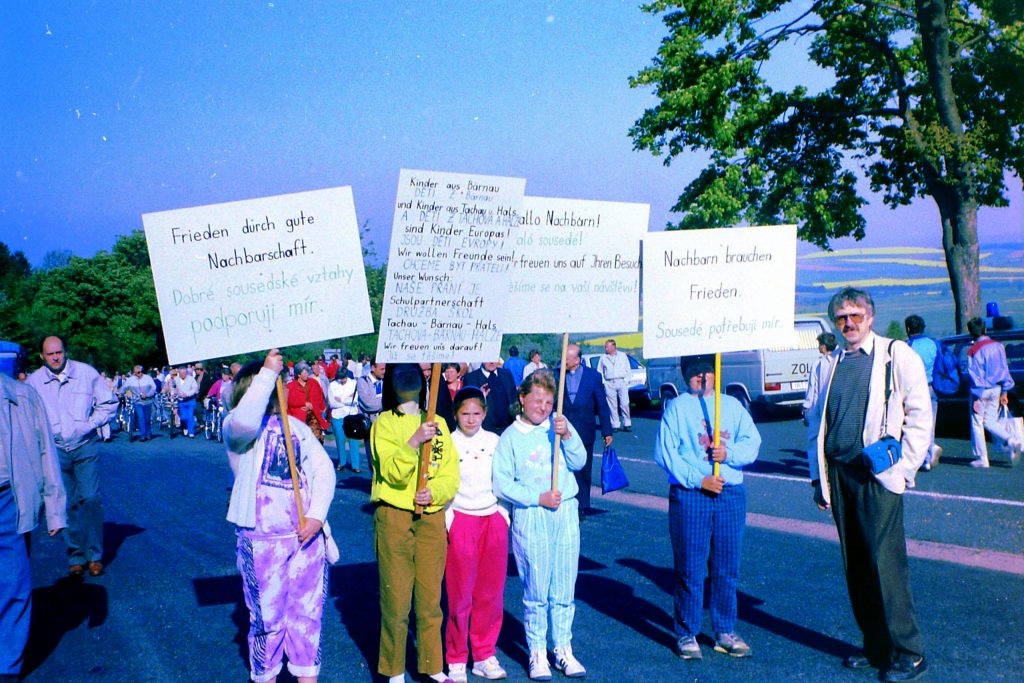 Frieden durch gute
Nachbarschaft.
Dobré sousedské vztahy
podporují mír.
Kinder aus Bärnau
DĚTI Z Bärnau
und Kinder aus Tachau u. Hals
A DĚTI Z TACHOVA A HALŽE
sind Kinder Europas!
JSOU DĚTI EVROPY!
Wir wollen Freunde sein!
CHCEME BÝT PŘÁTELI!
Unser Wunsch:
NAŠE PŘÁNÍ JE
Schulpartnerschaft
DRUŽBA ŠKOL
Tachau - Bärnau - Hals
TACHOV-BÄRNAU-HALŽE
Wir freuen uns darauf!
allo Nachbarn!
aló sousedé!
freuen uns auf Ihren Besuch
ěšíme se na vaší návštěvu!
Nachbarn brauchen
Frieden.
Sousedé potřebují mír.
ZOL